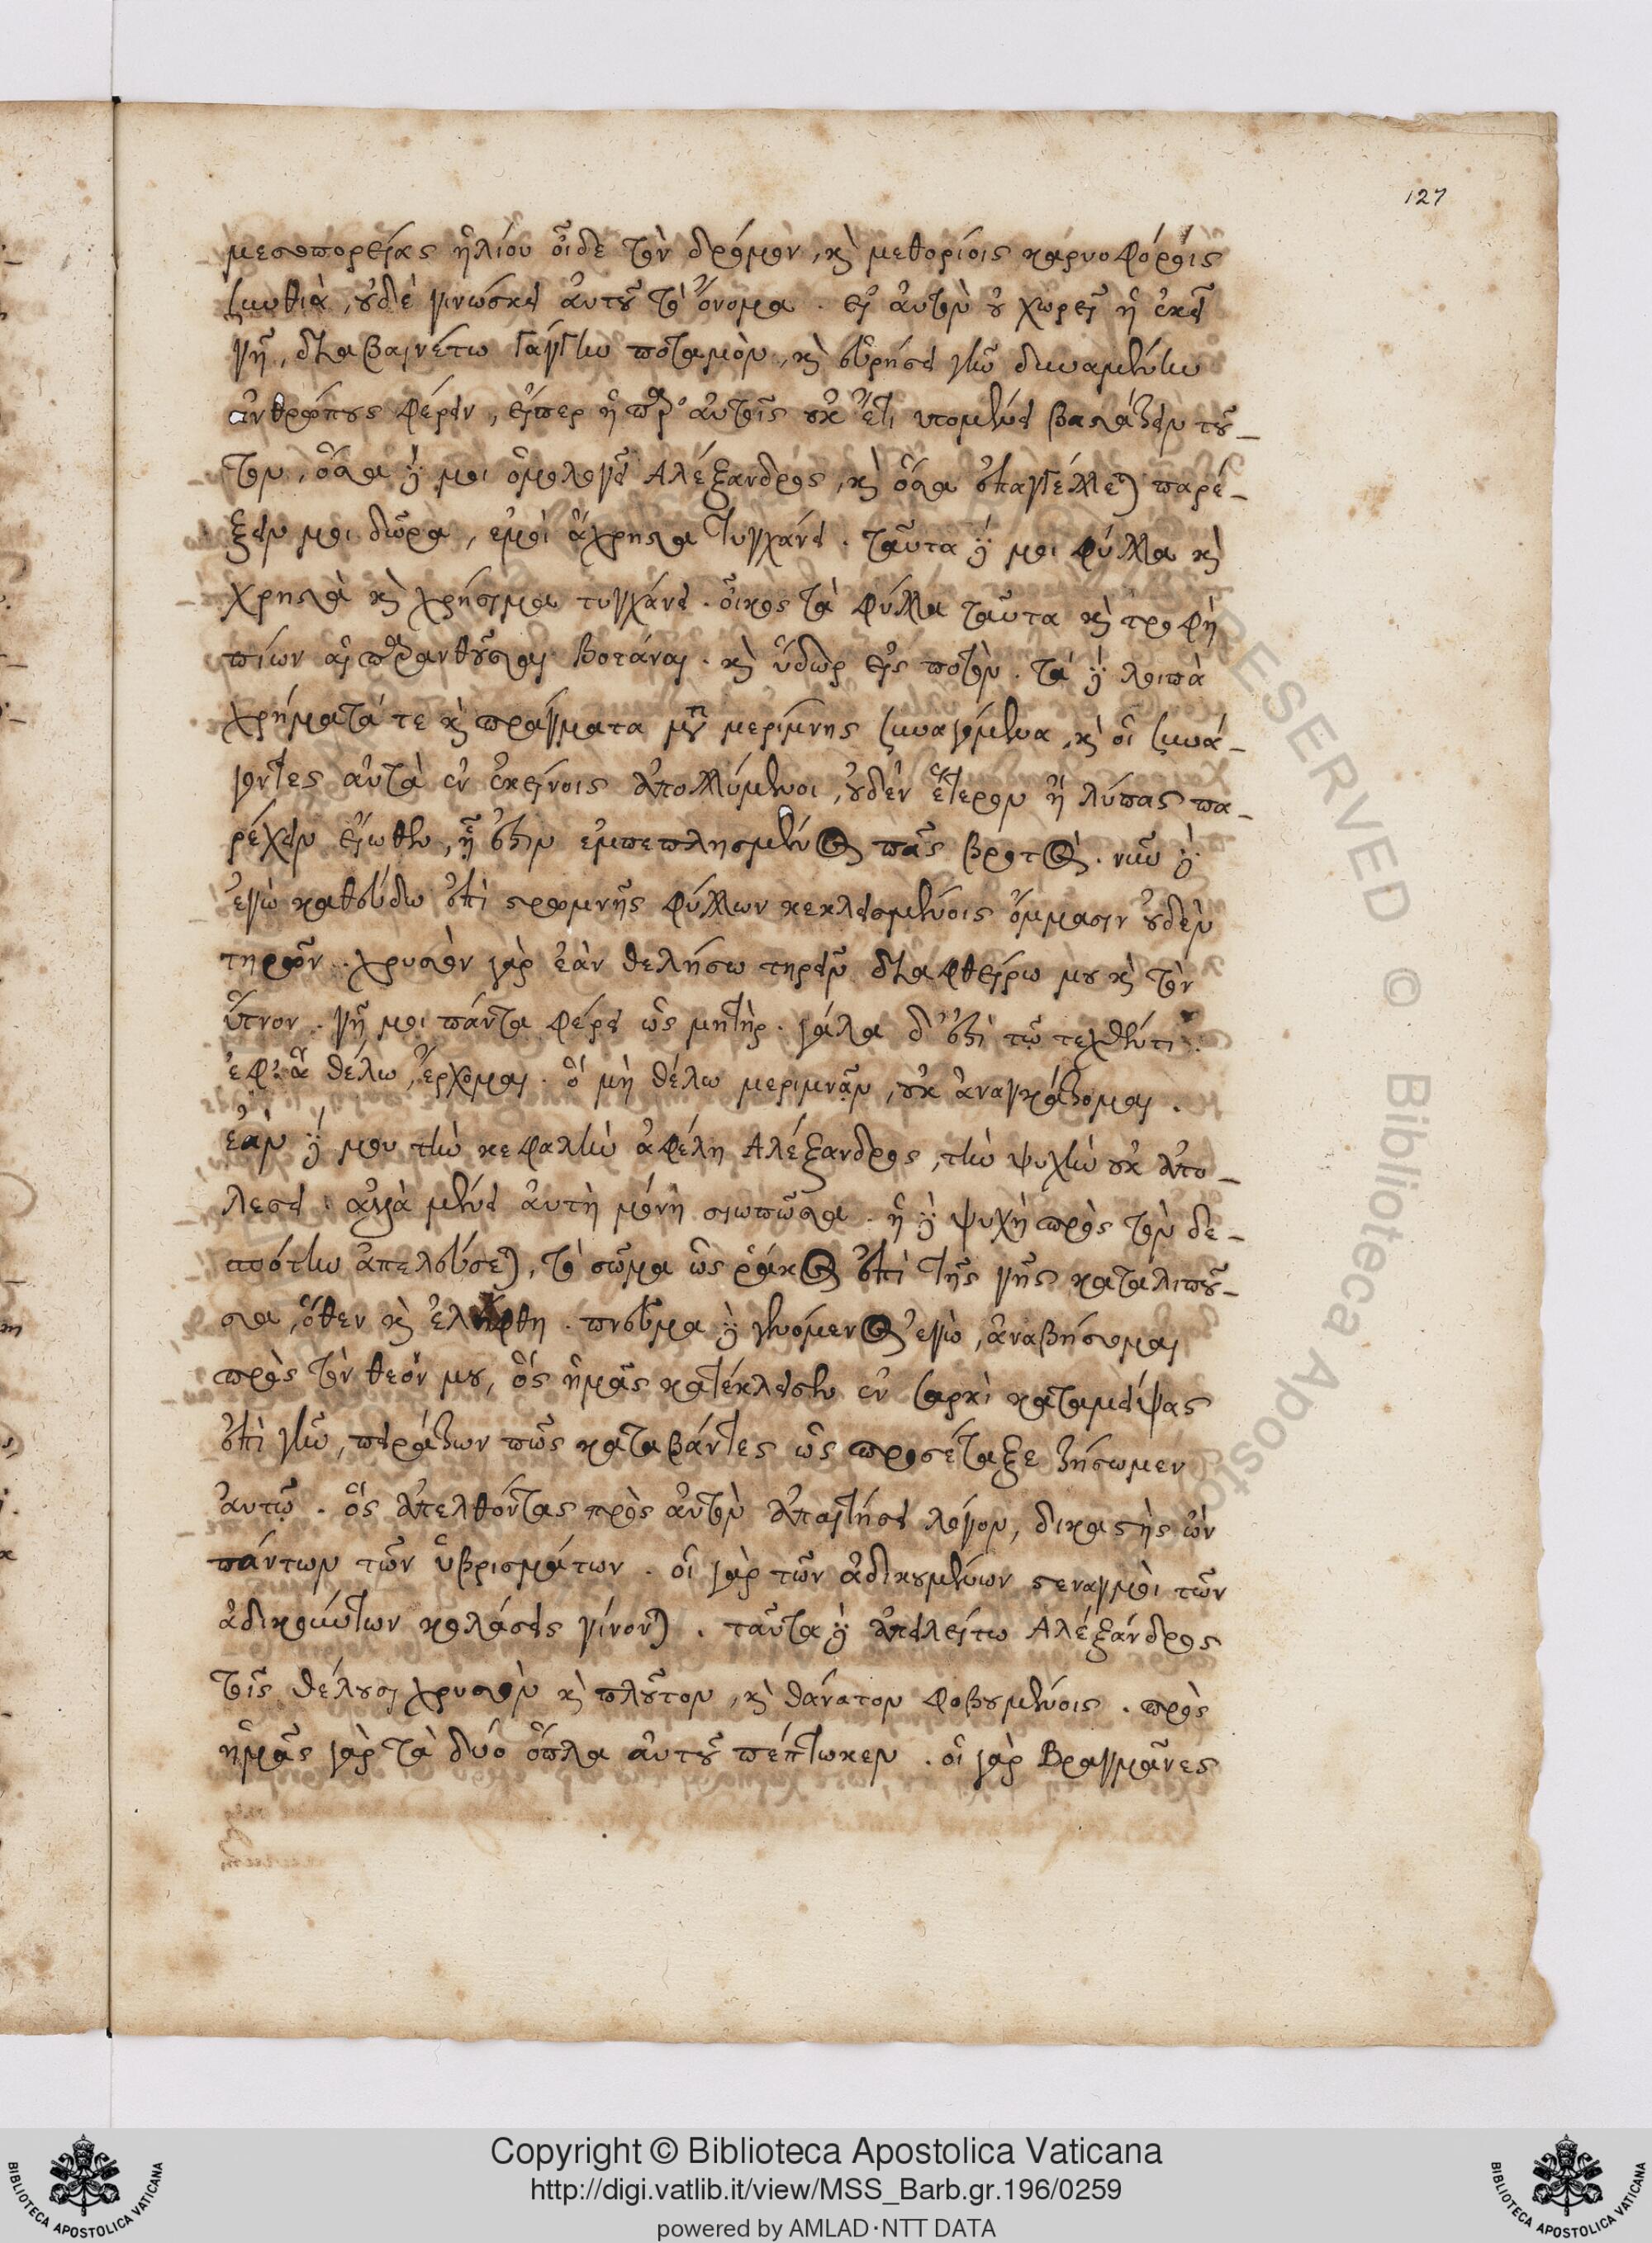 127
μεσοπορείας ἡλίου οἶδε τὸν δρόμον, κ̀ μεθορίοις καρποφόροις
Σκυθία, οὐδὲ γινώσκει ἀυτοῦ τὸ ὄνομα. εἰ ἀυτὸν οὐ χωρεῖ ἡ ἐκεῖ
γῆ, διαβαινέτω Γάγγην ποταμὸν, κ̀ εὑρήσει γῆν δυναμένην
ἀνθρώπους φέρειν, εἴπερ ἡ παρ' ἀυτοῖς οὐκ ἔτι υπομένει βαστάζειν τοῦ-
τον, ὅσα δέ μοι ὁμολογεῖ Αλέξανδρος, κ̀ ὅσα ἐπαγγέλλεται παρέ-
ξειν μοι δῶρα, εμοὶ ἄχρηστα τυγχάνει. ταῦτα δέ μοι φύλλα κ̀
χρηστὰ κ̀ χρήσιμα τυγχάνει. οἶκος τὰ φύλλα ταῦτα κ̀ τροφὴ
πίων αἱ παρανθοῦσαι βοτάναι. κ̀ ὕδωρ εἰς ποτὸν. τὰ δὲ λοιπὰ
χρήματά τε κ̀ πράγματα μετὰ μερίμνης συναγόμενα, κ̀ οἱ συνά-
γοντες αὐτὰ ἐν ἐκείνοις ἀπολλύμενοι, οὐδὲν ἕτερον ἢ λύπας πα-
ρέχειν εἴωθεν, ἧς ἐστιν εμπεπλησμένος πᾶς βροτὸς. νῦν δὲ
ἐγὼ καθεύδω ἐπὶ στρωμνῆς φύλλων κεκλεισμένοις ὄμμασιν οὐδὲν
τηρῶν. χρυσὸν γὰρ ἐὰν θελήσω τηρεῖν διαφθείρω μου κ̀ τὸν
ὕπνον. γῆ μοι πάντα φέρει ὡς μητὴρ. γάλα δ' ἐστὶ τῷ τεχθέντι.
ἐφ' ἃ θέλω, ἔρχομαι. ὃ μὴ θέλω μεριμνᾷν, οὐκ ἀναγκάζομαι.
ἐὰν δέ μου τὴν κεφαλὴν ἀφέλη Αλέξανδρος, τὴν ψυχὴν οὐκ ἀπο-
λέσει. ἀλλὰ μένει ἀυτὴ μόνη σιωπῶσα. ἡ δὲ ψυχὴ πρὸς τὸν δε-
σπότην ἀπελεύσεται, τὸ σῶμα ὡς ῥάκος ἐπὶ τῆς γῆς καταλιποῦ-
σα, ὅθεν κ̀ ἐλήφθη. πνεῦμα δὲ γενόμενος ἐγὼ, ἀναβήσομαι
πρὸς τὸν θεόν μου, ὃς ἡμᾶς κατέκλεισεν ἐν σαρκὶ καταπέμψας
ἐπὶ γῆν, πειράζων πῶς καταβάντες ὡς προσέταξε ζήσωμεν
ἀυτῷ. ὃς ἀπελθόντας πρὸς ἀυτὸν ἀπαιτήσει λόγον, δικαστὴς ὢν
πάντων τῶν ὑβρισμάτων. οἱ γὰρ τῶν ἀδικουμένων στεναγμοὶ τῶν
ἀδικούντων κολάσεις γίνονται. ταῦτα δὲ ἀπειλείτω Αλέξανδρος
τοῖς θέλουσι χρυσὸν κ̀ πλοῦτον, κ̀ θάνατον φοβουμένοις. πρὸς
ἡμᾶς γὰρ τὰ δύο ὅπλα αὐτοῦ πέπτωκεν. οἱ γὰρ Βραγμᾶνες
RESERVED © Biblioteca Aposto
Copyright © Biblioteca Apostolica Vaticana
http://digi.vatlib.it/view/MSS_Barb.gr.196/0259
powered by AMLAD·NTT DATA
BIBLIOTECA APOSTOLICA VATICANA
BIBLIOTECA APOSTOLICA VATICANA